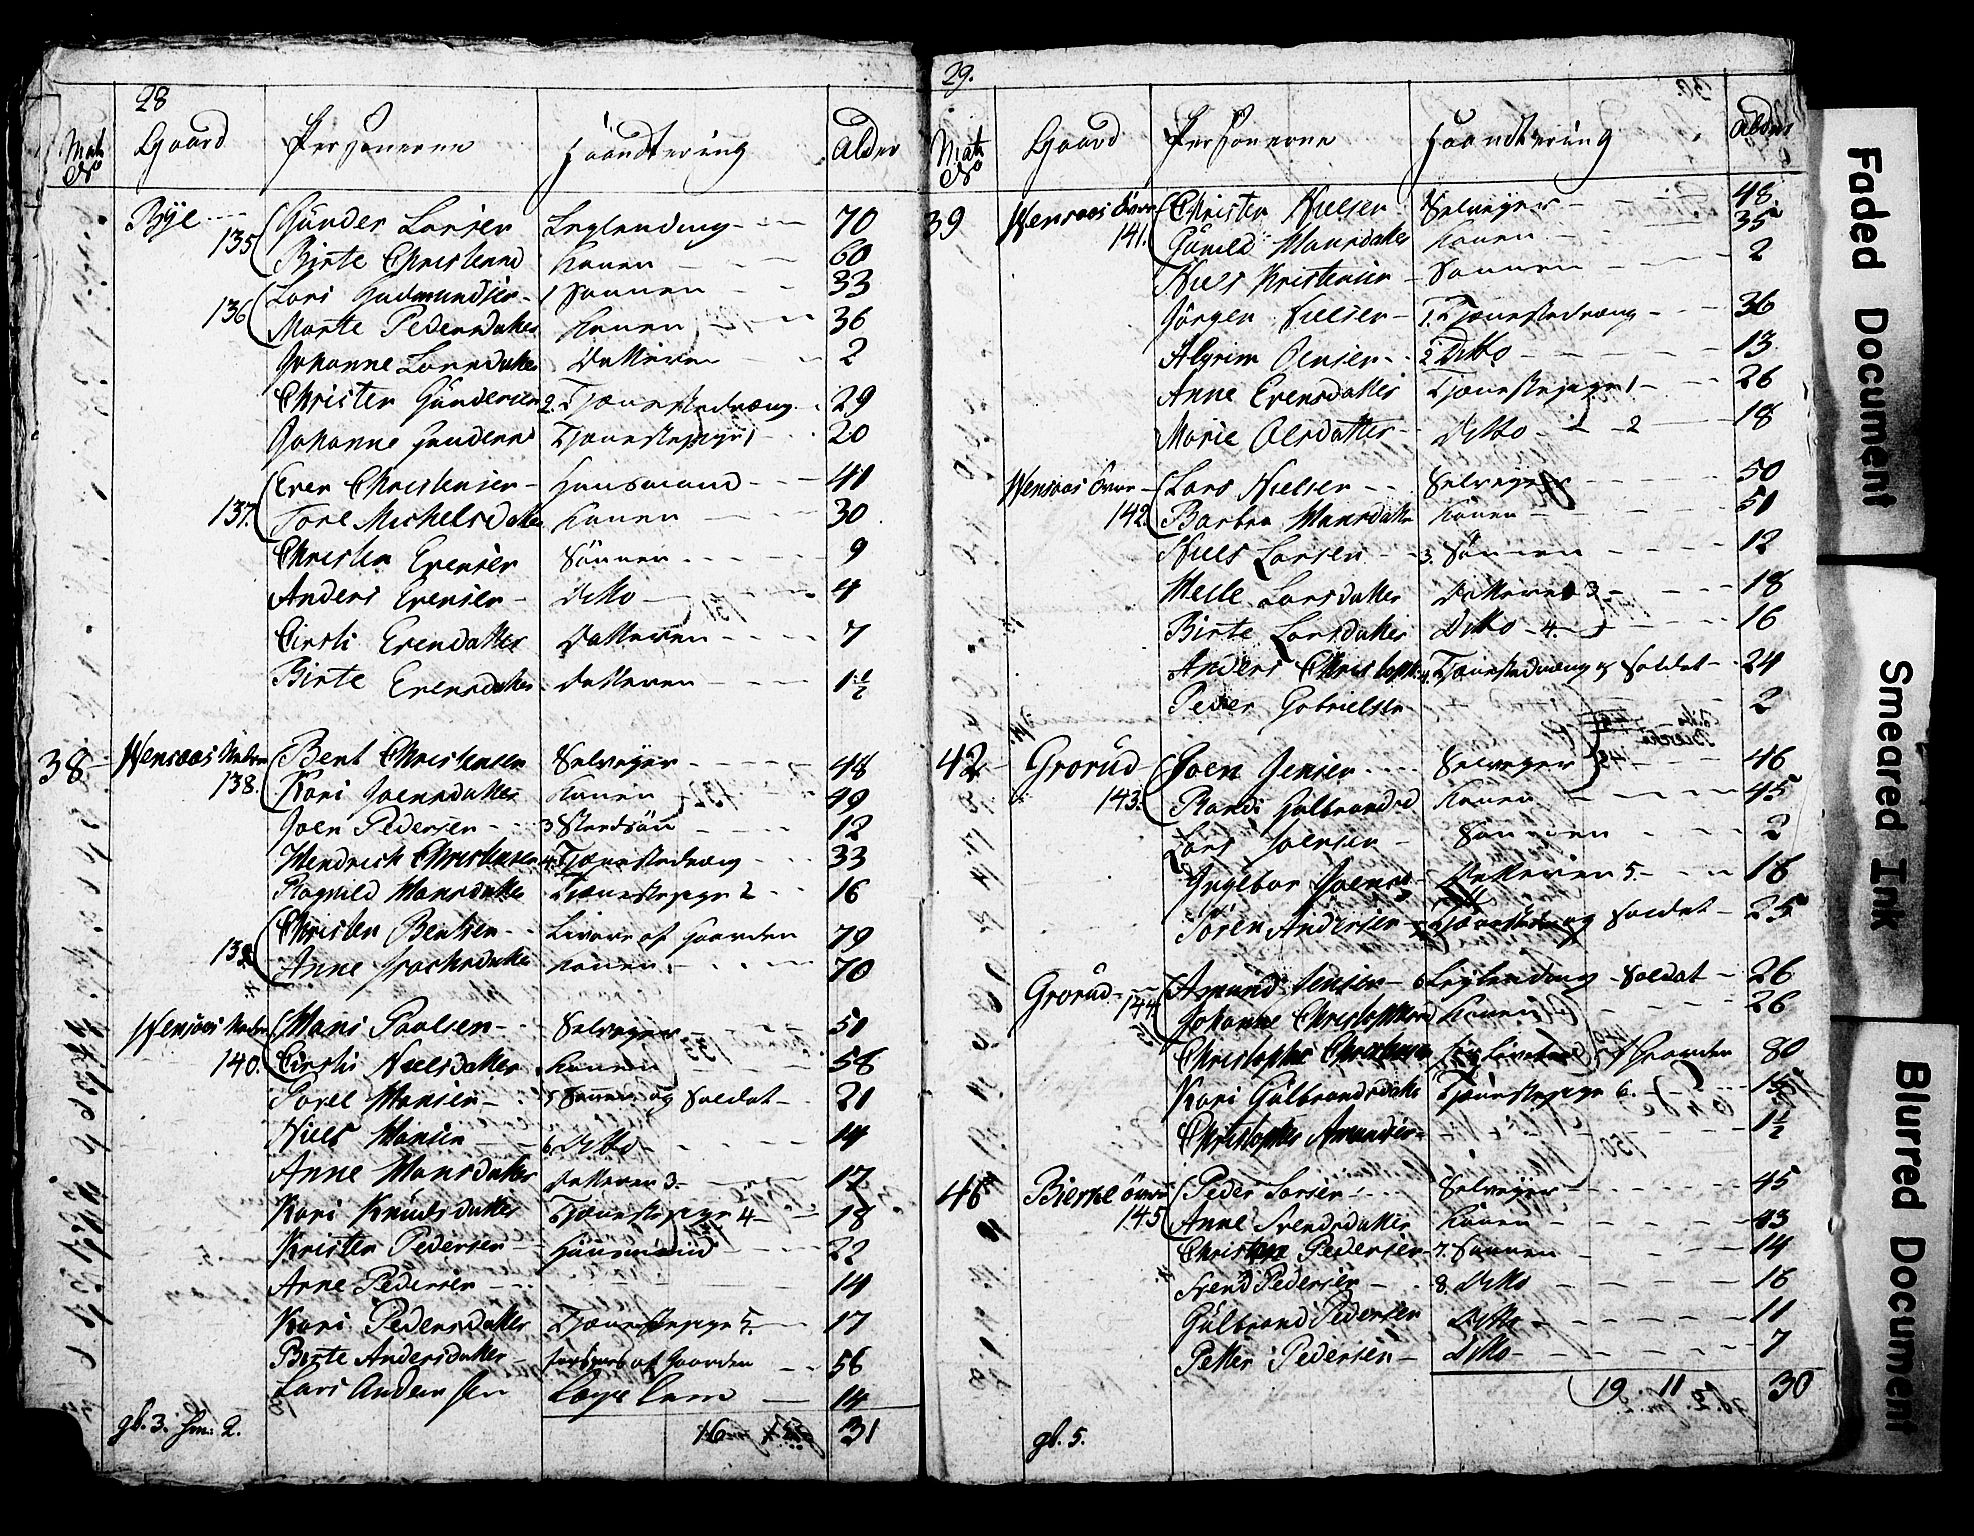 28
Mat No Gaard Personerne Haandtering Alder
Bye 135 Gunder Larsen Leylending 70
Birte Christensd Konen 60
136 Lars Gudmundsen 1 Sønnen 33
Marte Pedersdatter Konen 36
Johanne Larsdatter Datteren 2
Christen Gundersen 2. Tjænestedræng 29
Johanne Gundersd Tjænestepige 1 20
137. Even Christensen Huusmand 41
Tore Michelsdatter Konen 30
Christen Evensen Sønnen 9
Anders Evensen Ditto 4
Cirsti Evendatter Datteren 7
Birte Evensdatter Datteren 1½
38 Wensaas Nedre 138. Bent Christensen Selveyer 48
Kari Joensdatter Konen 49
Joen Pedersen 3 Stedsøn 12
Hendrich Christensen 4. Tjænestedræng 33
Ragnild Hansdatter Tjænestepige 2 16
139 Christen Bentsen Livøre af Gaarden 79
Anne Jrachsdatter Konen 70
Wensaas Nedre 140. Hans Paalsen Selveyer 51
Cirsti Nielsdatter Konen 58
Parel Hansen 5 Sønnen og Soldat 21
Niels Hansen 6 Ditto 14
Anne Hansdatter Datteren 3. 17
Kari Knudsdatter Tjænestepige 4 18
Kristen Pedersen Huusmand 22
Arne Pedersen 14
Kari Pedersdatter Tjænestepige 5. 17
Berte Andersdatter forsørges af Gaarden 56
Lars Andersen Lægs Lem 14
gb. 3. Hm. 2. 16 31
29.
Mat No Gaard Personerne Haandtering Alder
39 Wensaas Övre 141. Christen Nielsen Selveyer 48
Gunild Hansdatter Konen 35
Niels Kristensen Sønnen 2
Jørgen Nielsen 1. Tjænestedræng 36
Algrim Olensen 2 Ditto 13
Anne Evensdatter Tjænestepige 1 26
Marie Olesdatter Ditto 2 18
Wensaas Övre 142. Lars Nielsen Selveyer 50
Barbra Hansdatter Konen 51
Niels Larsen 3. Sønnen 12
Helle Larsdatter Datteren 3 18
Birte Larsdatter Ditto 4. 16
Anders Christoph 4. Tjænestedræng og Soldat 24
Peder Gabrielsen 2
42 Grorud 143. Joen Jensen Selveyer 46
Randi Gulbrandsd Konen 45
Lars Joensen Sønnen 2
Ingebor Joensd Datteren 5. 16
Søren Andersen Tjænestedræng og Soldat 25
Grorud 144 Amund Jensen 6 Leylending Soldat 26
Johanne Christophersd Konen 26
Christopher Christensen af Gaarden 80
Kari Gulbrandsdatter Tjænestepige 6. 15
Christopher Amundsen 1½
46 Bierke Övre 145 Peder Larsen Selveyer 45
Anne Svendsdatter Konen 43
Christen Pedersen 7. Sønnen 14
Svend Pedersen 8. Ditto 16
Gulbrand Pedersen Ditto 11
Petter Pedersen Ditto 7
19 11 30
gb. 5.
Faded Document
Smeared Ink
Blurred Document